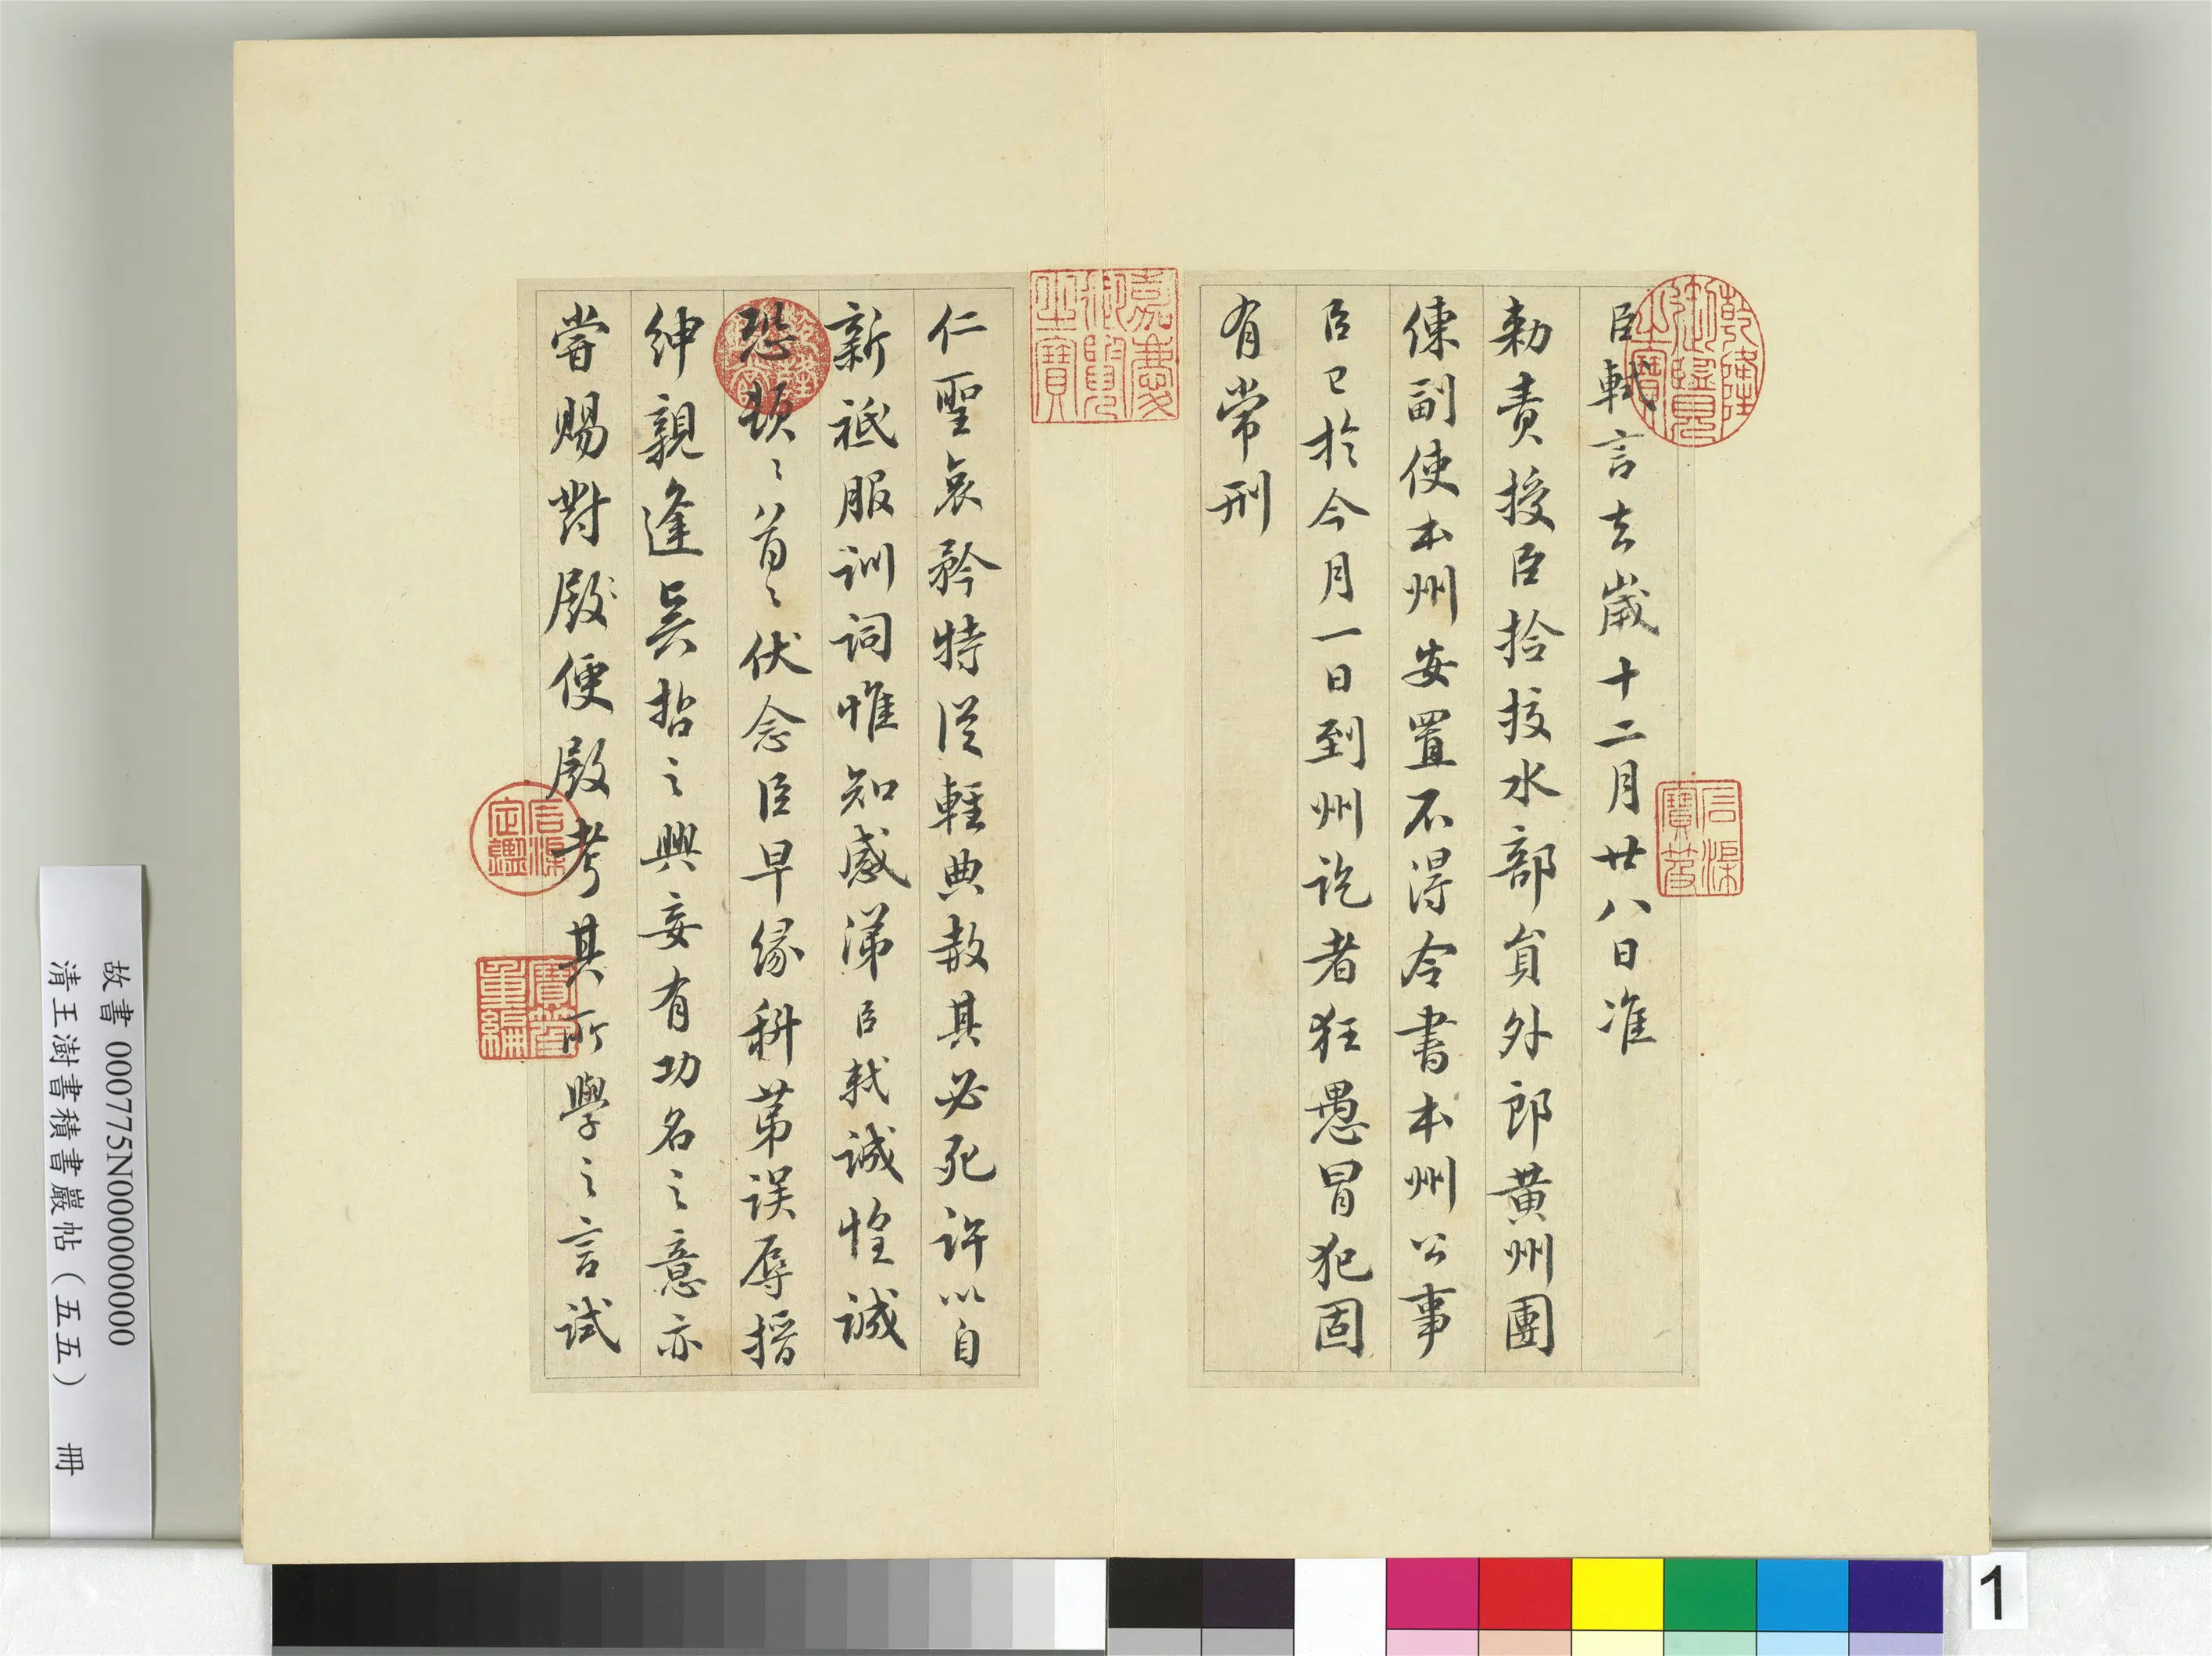 臣軾言去歲十二月廿八日准
勅責授臣檢挍水部員外郎黃州團
練副使本州安置不得令書本州公事
臣已於今月一日到州訖者狂愚冒犯固
有常刑
仁聖哀矜特從輕典赦其必死許以自
新祗服訓詞惟知感涕臣軾誠惶誠
恐頓〻首〻伏念臣早緣科第誤辱搢
紳親逢吳哲之興妄有功名之意亦
嘗賜對殿便殿考其所學之言試
乾隆御覽之寶
嘉慶御覽之寶
石渠寶笈
乾隆鑑賞
石渠定鑑
寶笈重編
故書 000775N000000000
清王澍書積書巖帖（五五） 冊
1